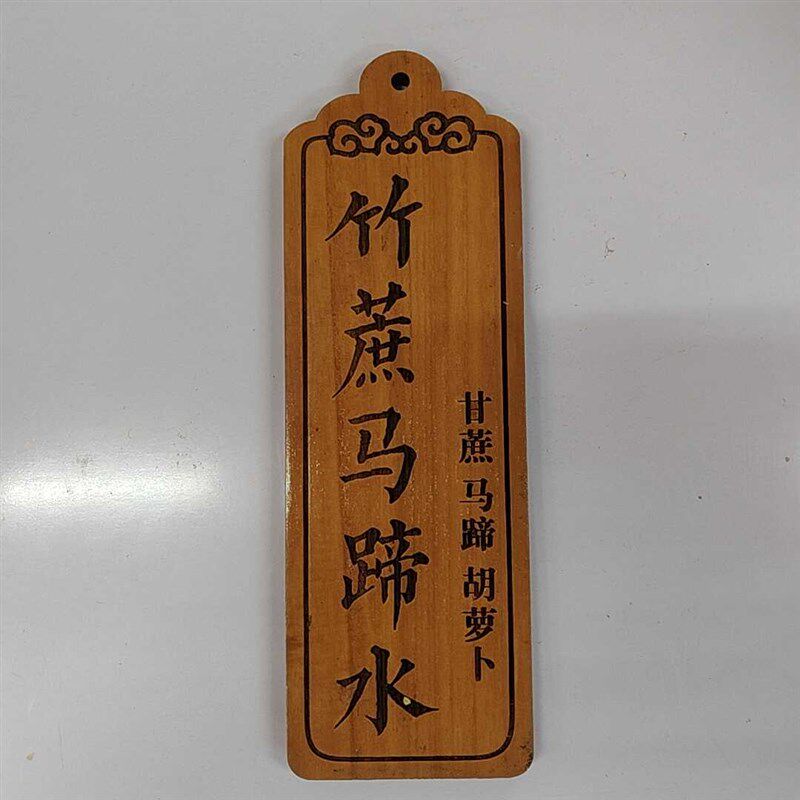 竹蔗马蹄水
甘蔗 马蹄 胡萝卜